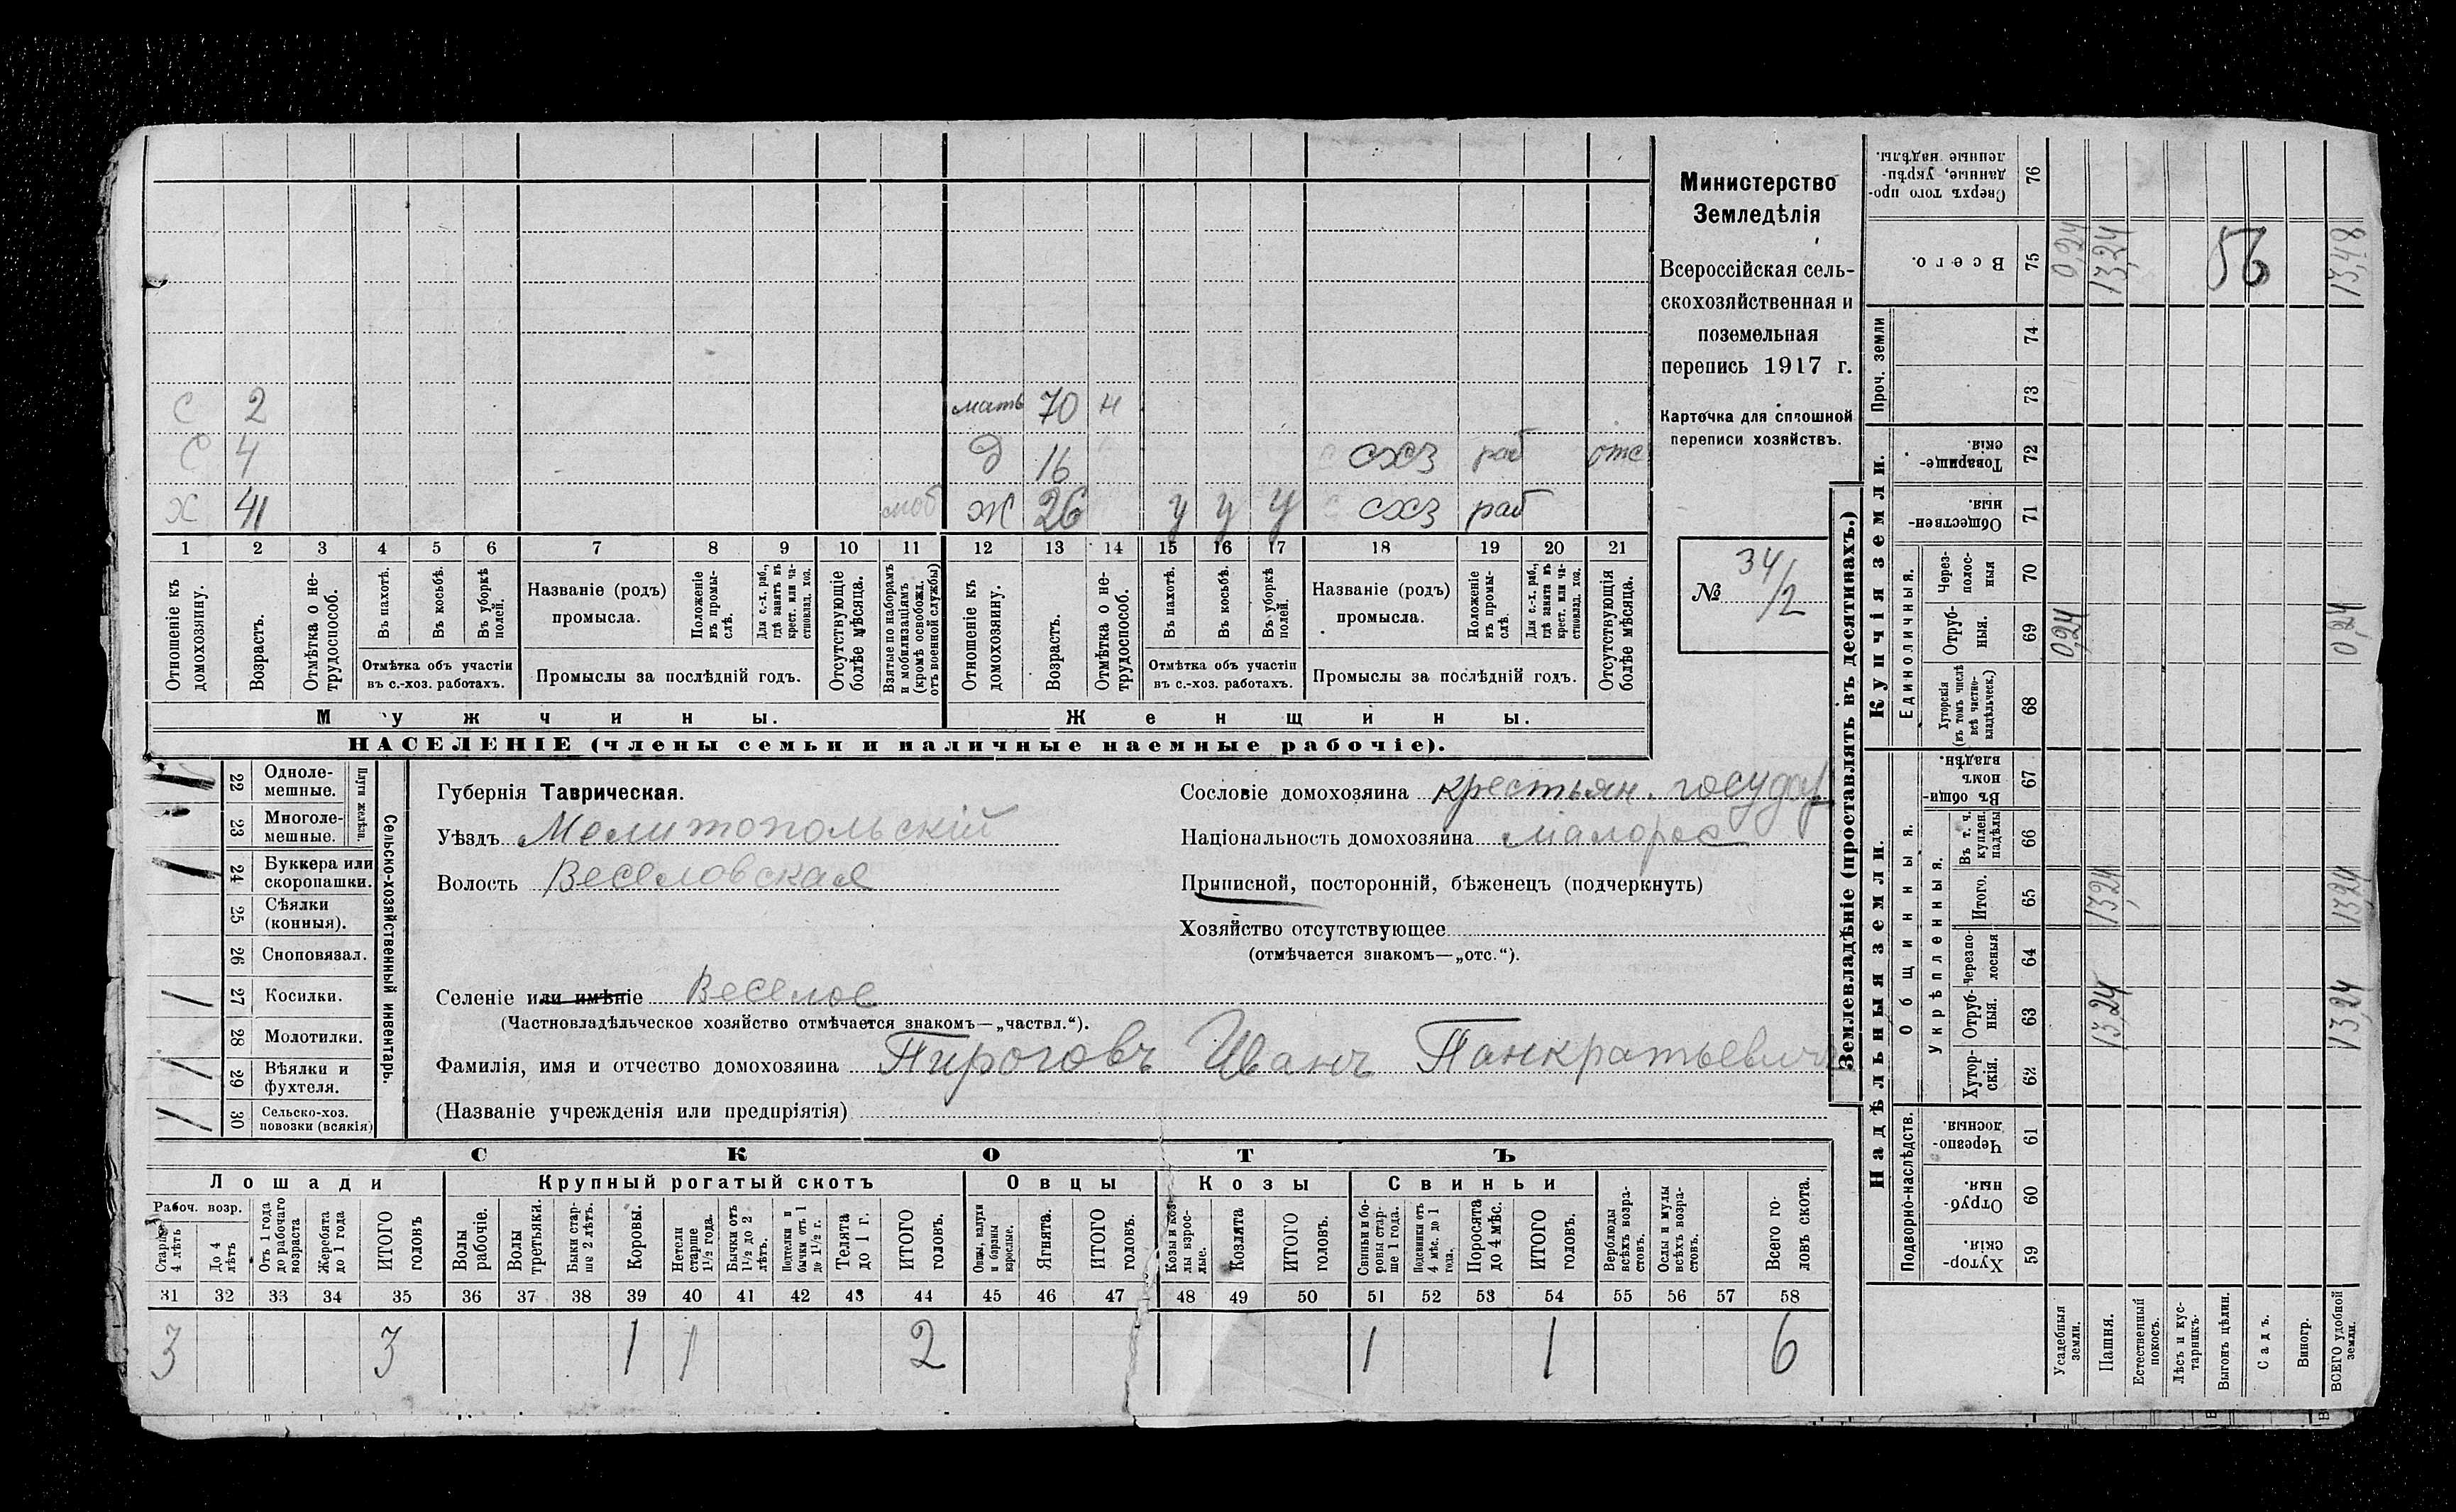 Министерство
Земледѣлія
Всероссійская сель-
скохозяйственная и
поземельная
перепись 1917 г.
Карточка для сплошной
переписи хозяйствъ.
№ 34/2
С 2 мать 70 н
С 4 д 16 схз раб отс
Х 41 моб ж 26 у у у схз раб
1 2 3 4 5 6 7 8 9 10 11 12 13 14 15 16 17 18 19 20 21
Отношеніе къ домохозяину.
Возрастъ.
Отмѣтка о не-трудоспособ.
Въ пахотѣ.
Въ косьбѣ.
Въ уборкѣ полей.
Отмѣтка объ участіи
въ с.-хоз. работахъ.
Названіе (родъ)
промысла.
Положеніе въ промы-слѣ.
Для с.-х. раб., гдѣ занятъ въ крест. или ча-стновлад. хоз.
Промыслы за послѣдній годъ.
Отсутствующіе болѣе мѣсяца.
Взятые по наборамъ и мобилизаціямъ (кромѣ освобожд. отъ военной службы)
Отношеніе къ домохозяину.
Возрастъ.
Отмѣтка о не-трудоспособ.
Въ пахотѣ.
Въ косьбѣ.
Въ уборкѣ полей.
Отмѣтка объ участіи
въ с.-хоз. работахъ.
Названіе (родъ)
промысла.
Положеніе въ промы-слѣ.
Для с.-х. раб., гдѣ занята въ крест. или ча-стновлад. хоз.
Промыслы за послѣдній годъ.
Отсутствующія болѣе мѣсяца.
Мужчины. Женщины.
НАСЕЛЕНІЕ (члены семьи и наличные наемные рабочіе).
22 Одноле-мешные.
23 Многоле-мешные.
Плуги желѣзн.
24 Буккера или скоропашки.
25 Сѣялки (конныя).
26 Сноповязал.
27 Косилки.
28 Молотилки.
29 Вѣялки и фухтеля.
30 Сельско-хоз. повозки (всякія)
Сельско-хозяйственный инвентарь.
Губернія Таврическая.
Уѣздъ Мелитопольскій
Волость Веселовская
Селеніе или имѣніе Веселое
(Частновладѣльческое хозяйство отмѣчается знакомъ—„частвл.“).
Фамилія, имя и отчество домохозяина Пироговъ Иванъ Панкратьевичъ
(Названіе учрежденія или предпріятія)
Сословіе домохозяина крестьян. государ
Національность домохозяина малорос
Приписной, посторонній, бѣженецъ (подчеркнуть)
Хозяйство отсутствующее
(отмѣчается знакомъ—„отс.“).
СКОТЪ
Лошади Крупный рогатый скотъ Овцы Козы Свиньи
Рабоч. возр.
Старше 4 лѣтъ
До 4 лѣтъ
Отъ 1 года до рабочаго возраста
Жеребята до 1 года
ИТОГО головъ
Волы рабочіе.
Волы третьяки.
Быки стар-ше 2 лѣтъ.
Коровы.
Нетели старше 1½ года.
Бычки отъ 1½ до 2 лѣтъ.
Подтелки и бычки отъ 1 до 1½ г.
Телята до 1 г.
ИТОГО головъ.
Овцы, валухи и бараны взрослые.
Ягнята.
ИТОГО головъ.
Козы и коз-лы взрос-лые.
Козлята
ИТОГО головъ.
Свиньи и бо-ровы стар-ше 1 года.
Подсвинки отъ 4 мѣс. до 1 года.
Поросята до 4 мѣс.
ИТОГО головъ.
Верблюды всѣхъ возра-стовъ.
Ослы и мулы всѣхъ возра-стовъ.
Всего го-ловъ скота.
31 32 33 34 35 36 37 38 39 40 41 42 43 44 45 46 47 48 49 50 51 52 53 54 55 56 57 58
3 3 1 1 2 1 1 6
Землевладѣніе (проставлять въ десятинахъ.)
Надѣльныя земли. Купчія земли. Проч. земли
Подворно-наслѣдств.
Общинныя.
Укрѣпленныя.
Единоличныя.
Сверхъ того про-данные, укрѣп-ленные надѣлы. 76
Всего. 75 0,24 13,24 56 13,48
74
73
Товарище-скія. 72
Обществен-ныя. 71
Через-полос-ныя 70
Отруб-ныя. 69 0,24 0,24
Хуторскія (въ томъ числѣ всѣ частно-владѣльческ.) 68
Въ общин-номъ владѣн. 67
Въ т. ч. куплен. надѣлы 66
Итого. 65 13,24 13,24
Черезпо-лосныя 64
Отруб-ныя. 63 13,24 13,24
Хутор-скія. 62
Черезпо-лосныя. 61
Отруб-ныя. 60
Хутор-скія. 59
Усадебныя земли.
Пашня.
Естественный покосъ.
Лѣсъ и кус-тарникъ.
Выгонъ цѣлин.
Садъ.
Виногр.
ВСЕГО удобной земли.